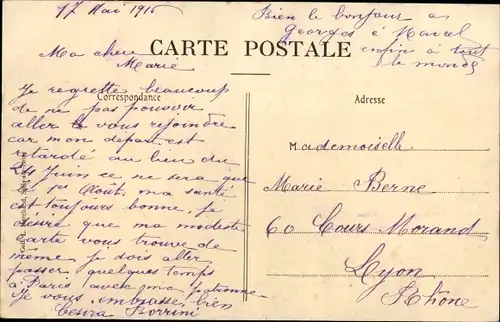 17 Mai 1916
Bien le bonfour a
Georges é Marcel
enfin à tout
le monde
CARTE POSTALE
Ma chere
Marie
Correspondance
Adresse
Je regrette beaucoup
de ne pas pouvoir
aller vous rejoindre
car mon depart est
retardé au lieu du
Juin ce ne sera que
le 1er Août, ma santé
est toujours bonne, je
désire que ma modeste
carte vous trouve de
même je dois aller
passer quelques temps
à Paris avec ma patronne
Je vous embrasse bien
Cesira Borrini
Mademoiselle
Marie Berne
60 Cours Morand
Lyon
Rhône